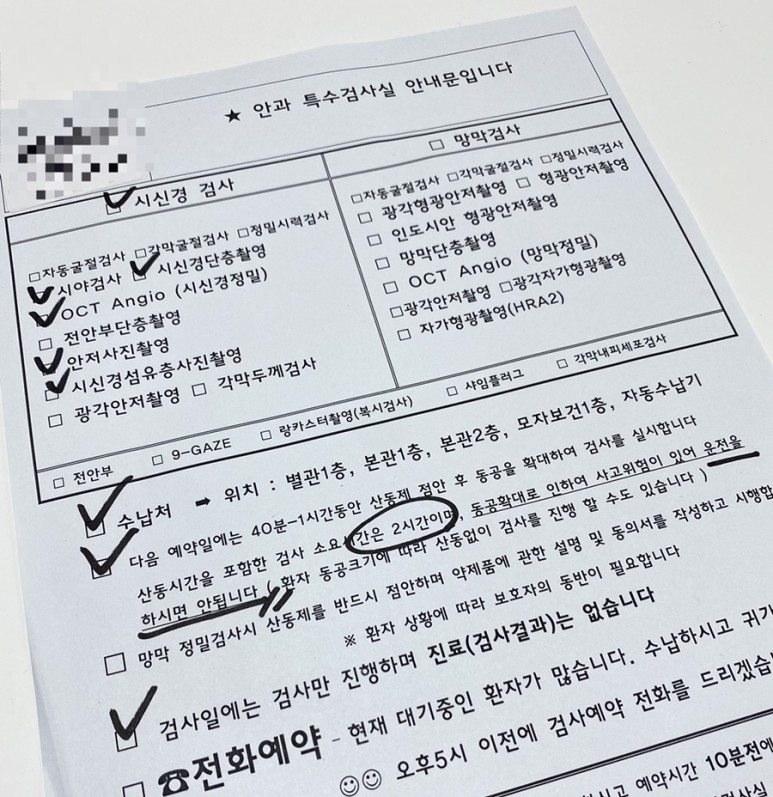 ★ 안과 특수검사실 안내문입니다
시신경 검사
□자동굴절검사 □각막굴절검사 □정밀시력검사
시야검사 시신경단층촬영
OCT Angio (시신경정밀)
□ 전안부단층촬영
안저사진촬영
시신경섬유층사진촬영
□ 광각안저촬영 □ 각막두께검사
□ 망막검사
□자동굴절검사 □각막굴절검사 □정밀시력검사
□ 광각형광안저촬영 □ 형광안저촬영
□ 인도시안 형광안저촬영
□ 망막단층촬영
□ OCT Angio (망막정밀)
□광각안저촬영 □광각자가형광촬영
□ 자가형광촬영(HRA2)
□ 전안부 □ 9-GAZE □ 랑카스터촬영(복시검사) □ 샤임플러그 □ 각막내피세포검사
수납처 ➡ 위치 : 별관1층, 본관1층, 본관2층, 모자보건1층, 자동수납기
다음 예약일에는 40분-1시간동안 산동제 점안 후 동공을 확대하여 검사를 실시합니다
산동시간을 포함한 검사 소요시간은 2시간이며, 동공확대로 인하여 사고위험이 있어 운전을
하시면 안됩니다 ( 환자 동공크기에 따라 산동없이 검사를 진행 할 수도 있습니다 )
□ 망막 정밀검사시 산동제를 반드시 점안하며 약제품에 관한 설명 및 동의서를 작성하고 시행합
※ 환자 상황에 따라 보호자의 동반이 필요합니다
검사일에는 검사만 진행하며 진료(검사결과)는 없습니다
□ ☎전화예약 - 현재 대기중인 환자가 많습니다. 수납하시고 귀가
☺☺ 오후5시 이전에 검사예약 전화를 드리겠습
예약시간 10분전에